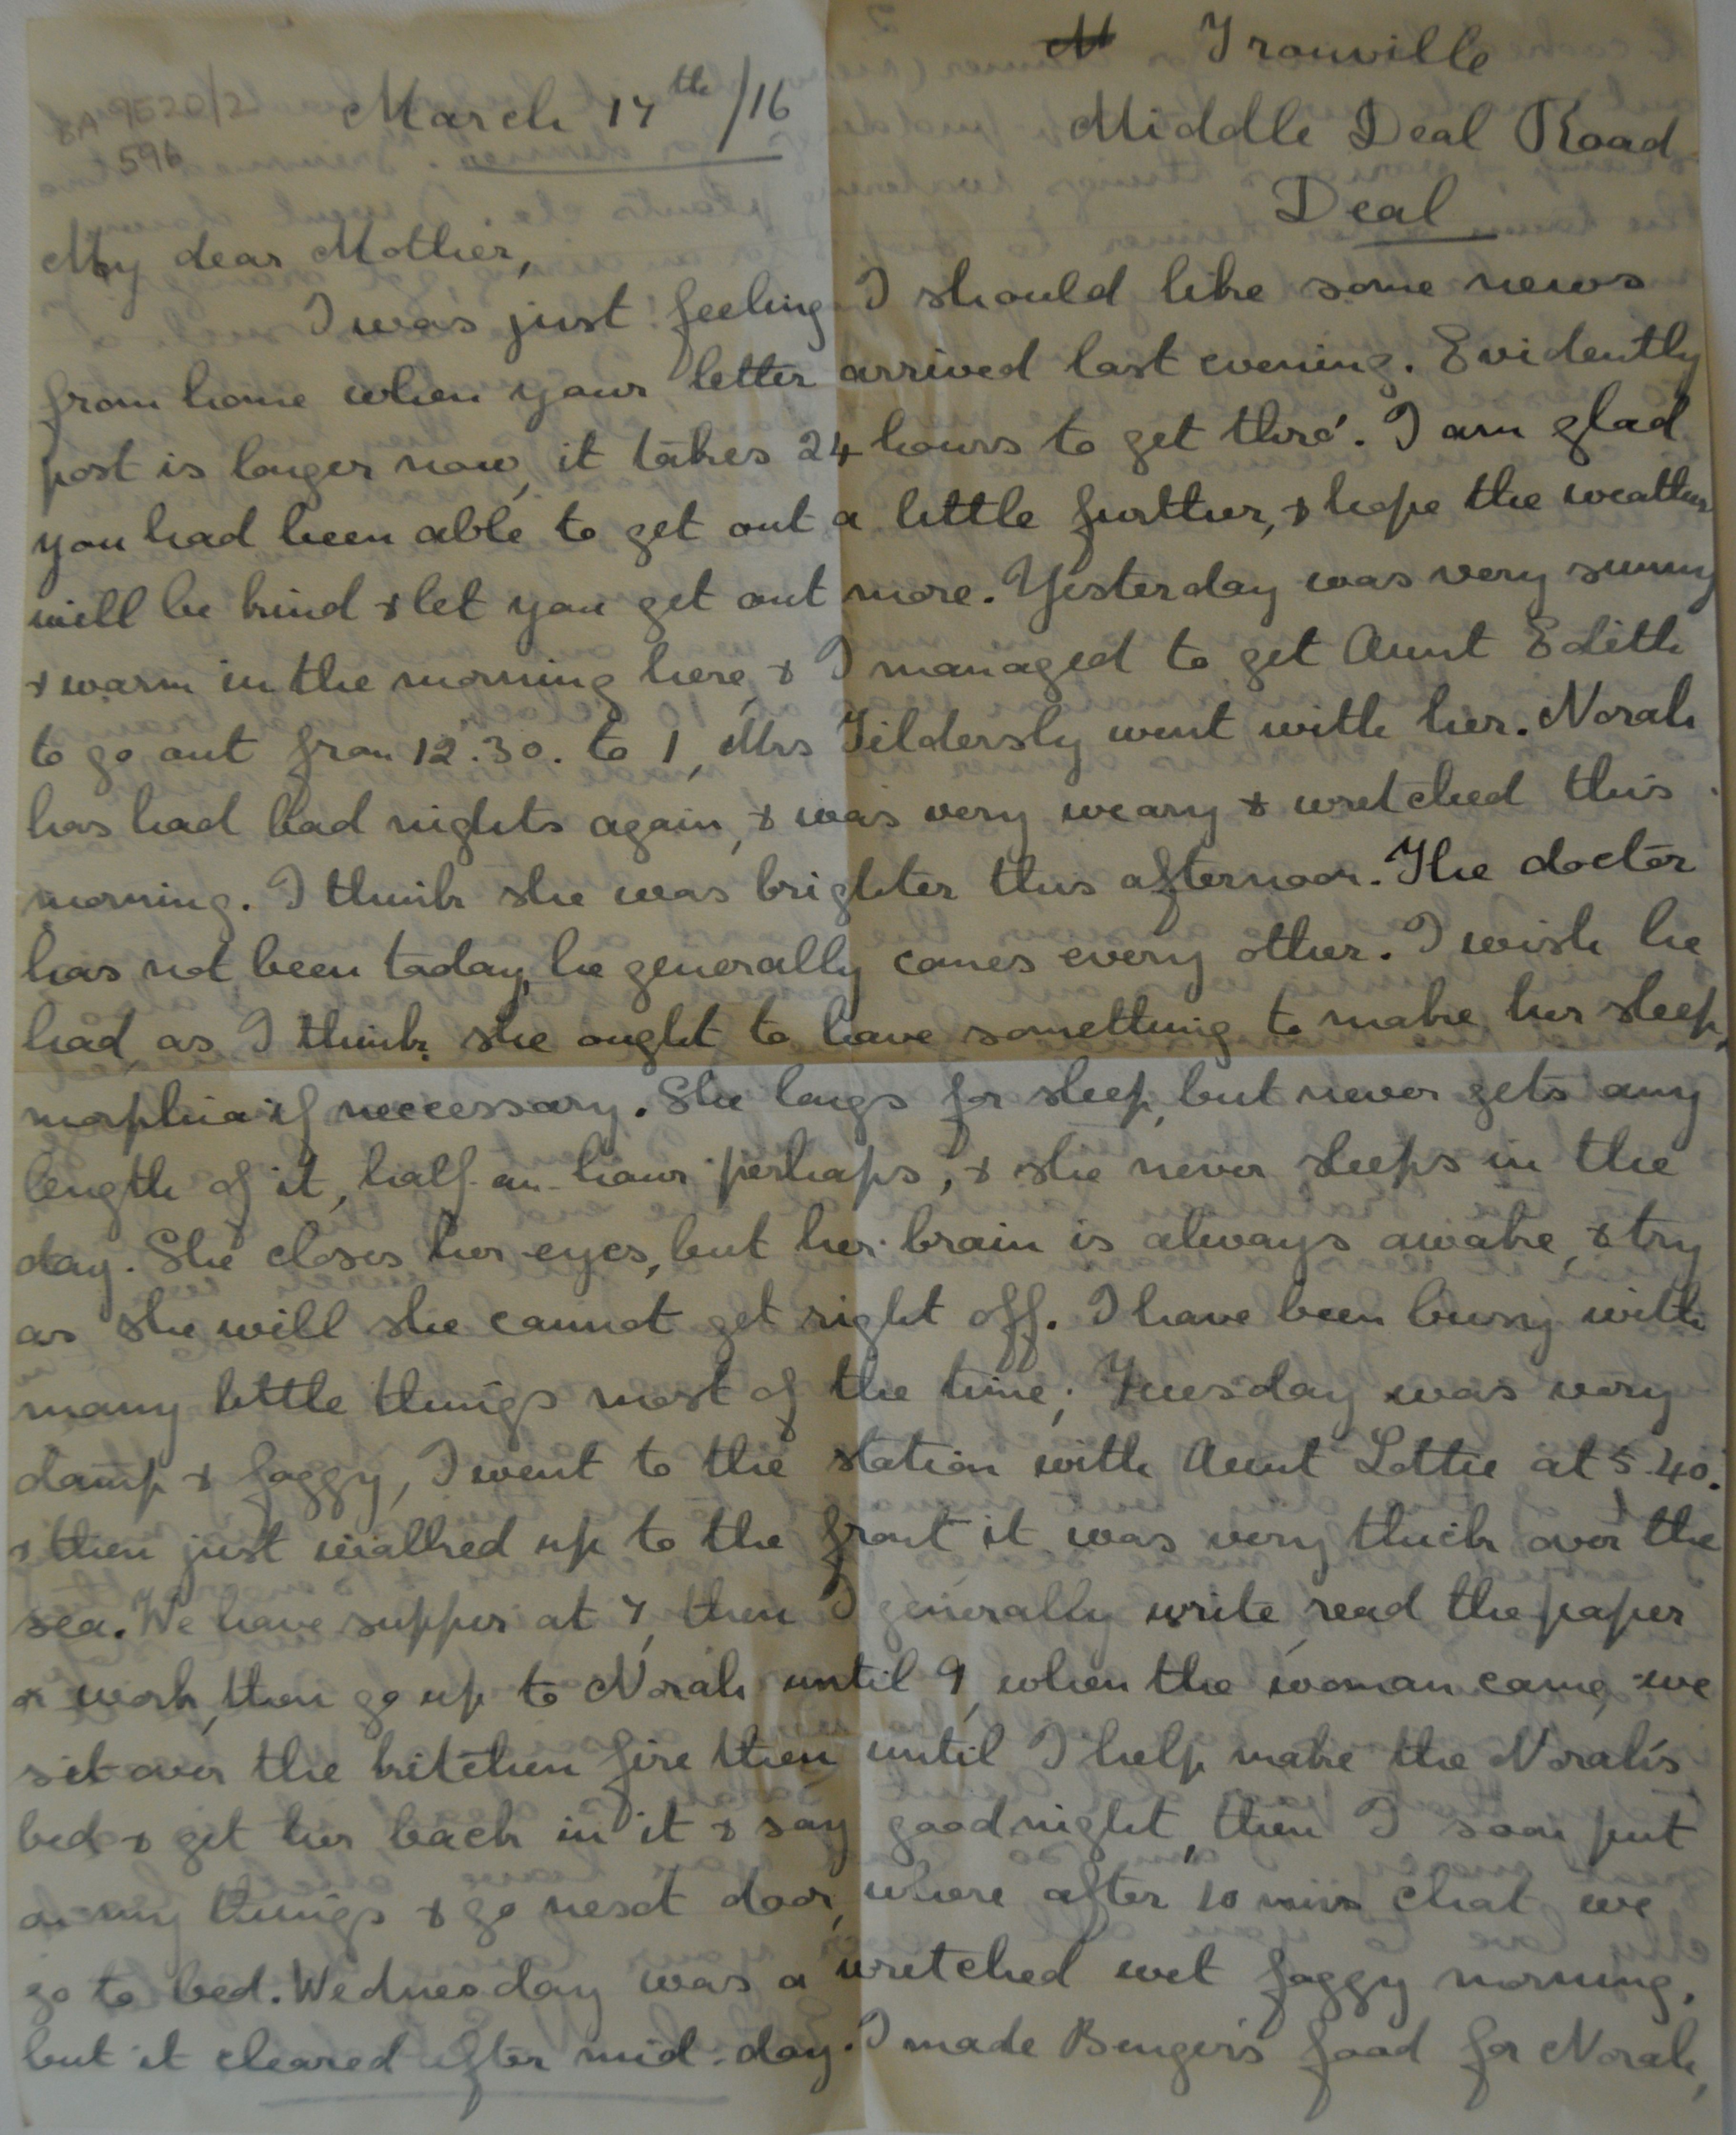 M Trouville
8A 9520/2 March 17th/16 Middle Deal Road
596 Deal
My dear Mother,
I was just feeling I should like some news
from home when your letter arrived last evening. Evidently
post is longer now, it takes 24 hours to get thro'. I am glad
you had been able to get out a little further, & hope the weather
will be kind & let you get out more. Yesterday was very sunny
& warm in the morning here, & I managed to get Aunt Edith
to go out from 12.30. to 1, Mrs Tildersly went with her. Norah
has had bad nights again, & was very weary & wretched this
morning. I think she was brighter this afternoon. The doctor
has not been today, he generally comes every other. I wish he
had, as I think she ought to have something to make her sleep,
morphia if neccessary. She longs for sleep, but never gets any
length of it, half-an-hour perhaps, & she never sleeps in the
day. She closes her eyes, but her brain is always awake, & try
as she will she cannot get right off. I have been busy with
many little things most of the time; Tuesday was very
damp & foggy, I went to the station with Aunt Lottie at 5.40.
& then just walked up to the front it was very thick over the
sea. We have supper at 7, then I generally write, read the paper
or work, then go up to Norah until 9, when the woman came, we
sit over the kitchen fire then until I help make the Norah's
bed & get her back in it & say goodnight, then I soon put
on my things & go next door, where after 10 mins chat we
go to bed. Wednesday was a wretched wet foggy morning,
but it cleared after mid-day. I made Benger's food for Norah,